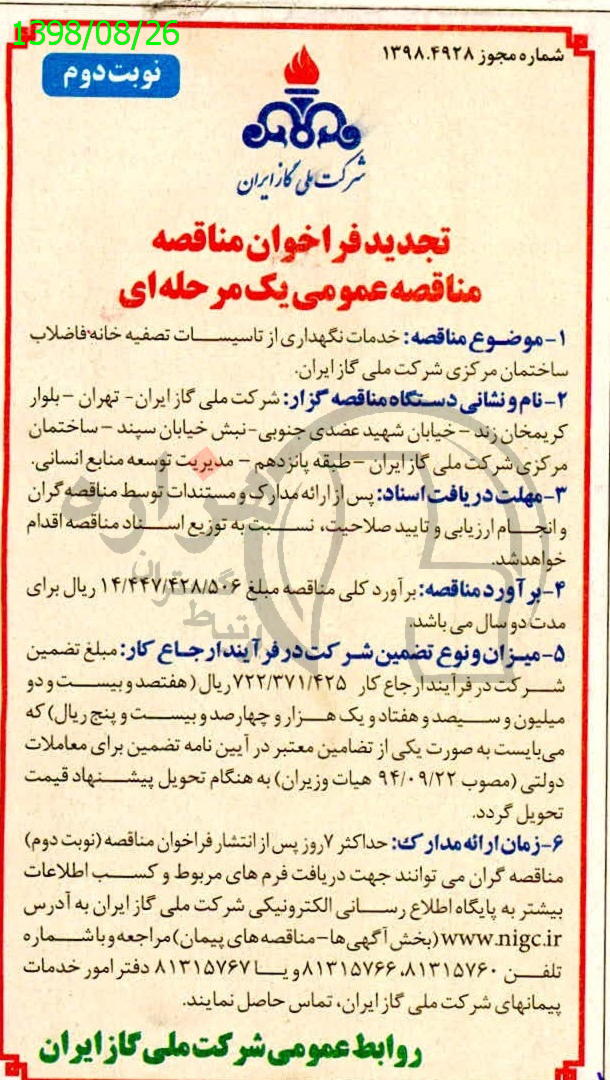 1398/08/26
شماره مجوز ۱۳۹۸.۴۹۲۸
نوبت دوم
شرکت ملی گاز ایران
تجدید فراخوان مناقصه
مناقصه عمومی یک مرحله ای
۱- موضوع مناقصه: خدمات نگهداری از تاسیسات تصفیه خانه فاضلاب
ساختمان مرکزی شرکت ملی گاز ایران.
۲- نام و نشانی دستگاه مناقصه گزار: شرکت ملی گاز ایران- تهران – بلوار
کریمخان زند – خیابان شهید عضدی جنوبی- نبش خیابان سپند – ساختمان
مرکزی شرکت ملی گاز ایران – طبقه پانزدهم – مدیریت توسعه منابع انسانی.
۳- مهلت دریافت اسناد: پس از ارائه مدارک و مستندات توسط مناقصه گران
و انجام ارزیابی و تایید صلاحیت، نسبت به توزیع اسناد مناقصه اقدام
خواهد شد.
۴- برآورد مناقصه: برآورد کلی مناقصه مبلغ ۱۴/۴۴۷/۴۲۸/۵۰۶ ریال برای
مدت دو سال می باشد.
۵- میزان و نوع تضمین شرکت در فرآیند ارجاع کار: مبلغ تضمین
شرکت در فرآیند ارجاع کار ۷۲۲/۳۷۱/۴۲۵ ریال (هفتصد و بیست و دو
میلیون و سیصد و هفتاد و یک هزار و چهارصد و بیست و پنج ریال) که
می‌بایست به صورت یکی از تضامین معتبر در آیین نامه تضمین برای معاملات
دولتی (مصوب ۹۴/۰۹/۲۲ هیات وزیران) به هنگام تحویل پیشنهاد قیمت
تحویل گردد.
۶- زمان ارائه مدارک: حداکثر ۷ روز پس از انتشار فراخوان مناقصه (نوبت دوم)
مناقصه گران می توانند جهت دریافت فرم های مربوط و کسب اطلاعات
بیشتر به پایگاه اطلاع رسانی الکترونیکی شرکت ملی گاز ایران به آدرس
www.nigc.ir (بخش آگهی ها – مناقصه های پیمان) مراجعه و با شماره
تلفن ۸۱۳۱۵۷۶۰، ۸۱۳۱۵۷۶۶ و یا ۸۱۳۱۵۷۶۷ دفتر امور خدمات
پیمانهای شرکت ملی گاز ایران، تماس حاصل نمایند.
روابط عمومی شرکت ملی گاز ایران
هزاره
ارتباط